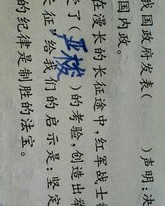 我国政府发表（　　）声明：决
国内政。
在漫长的长征途中，红军战士
了（严峻）的考验，创造出举
长征给我们的启示是：坚定
的纪律是制胜的法宝。